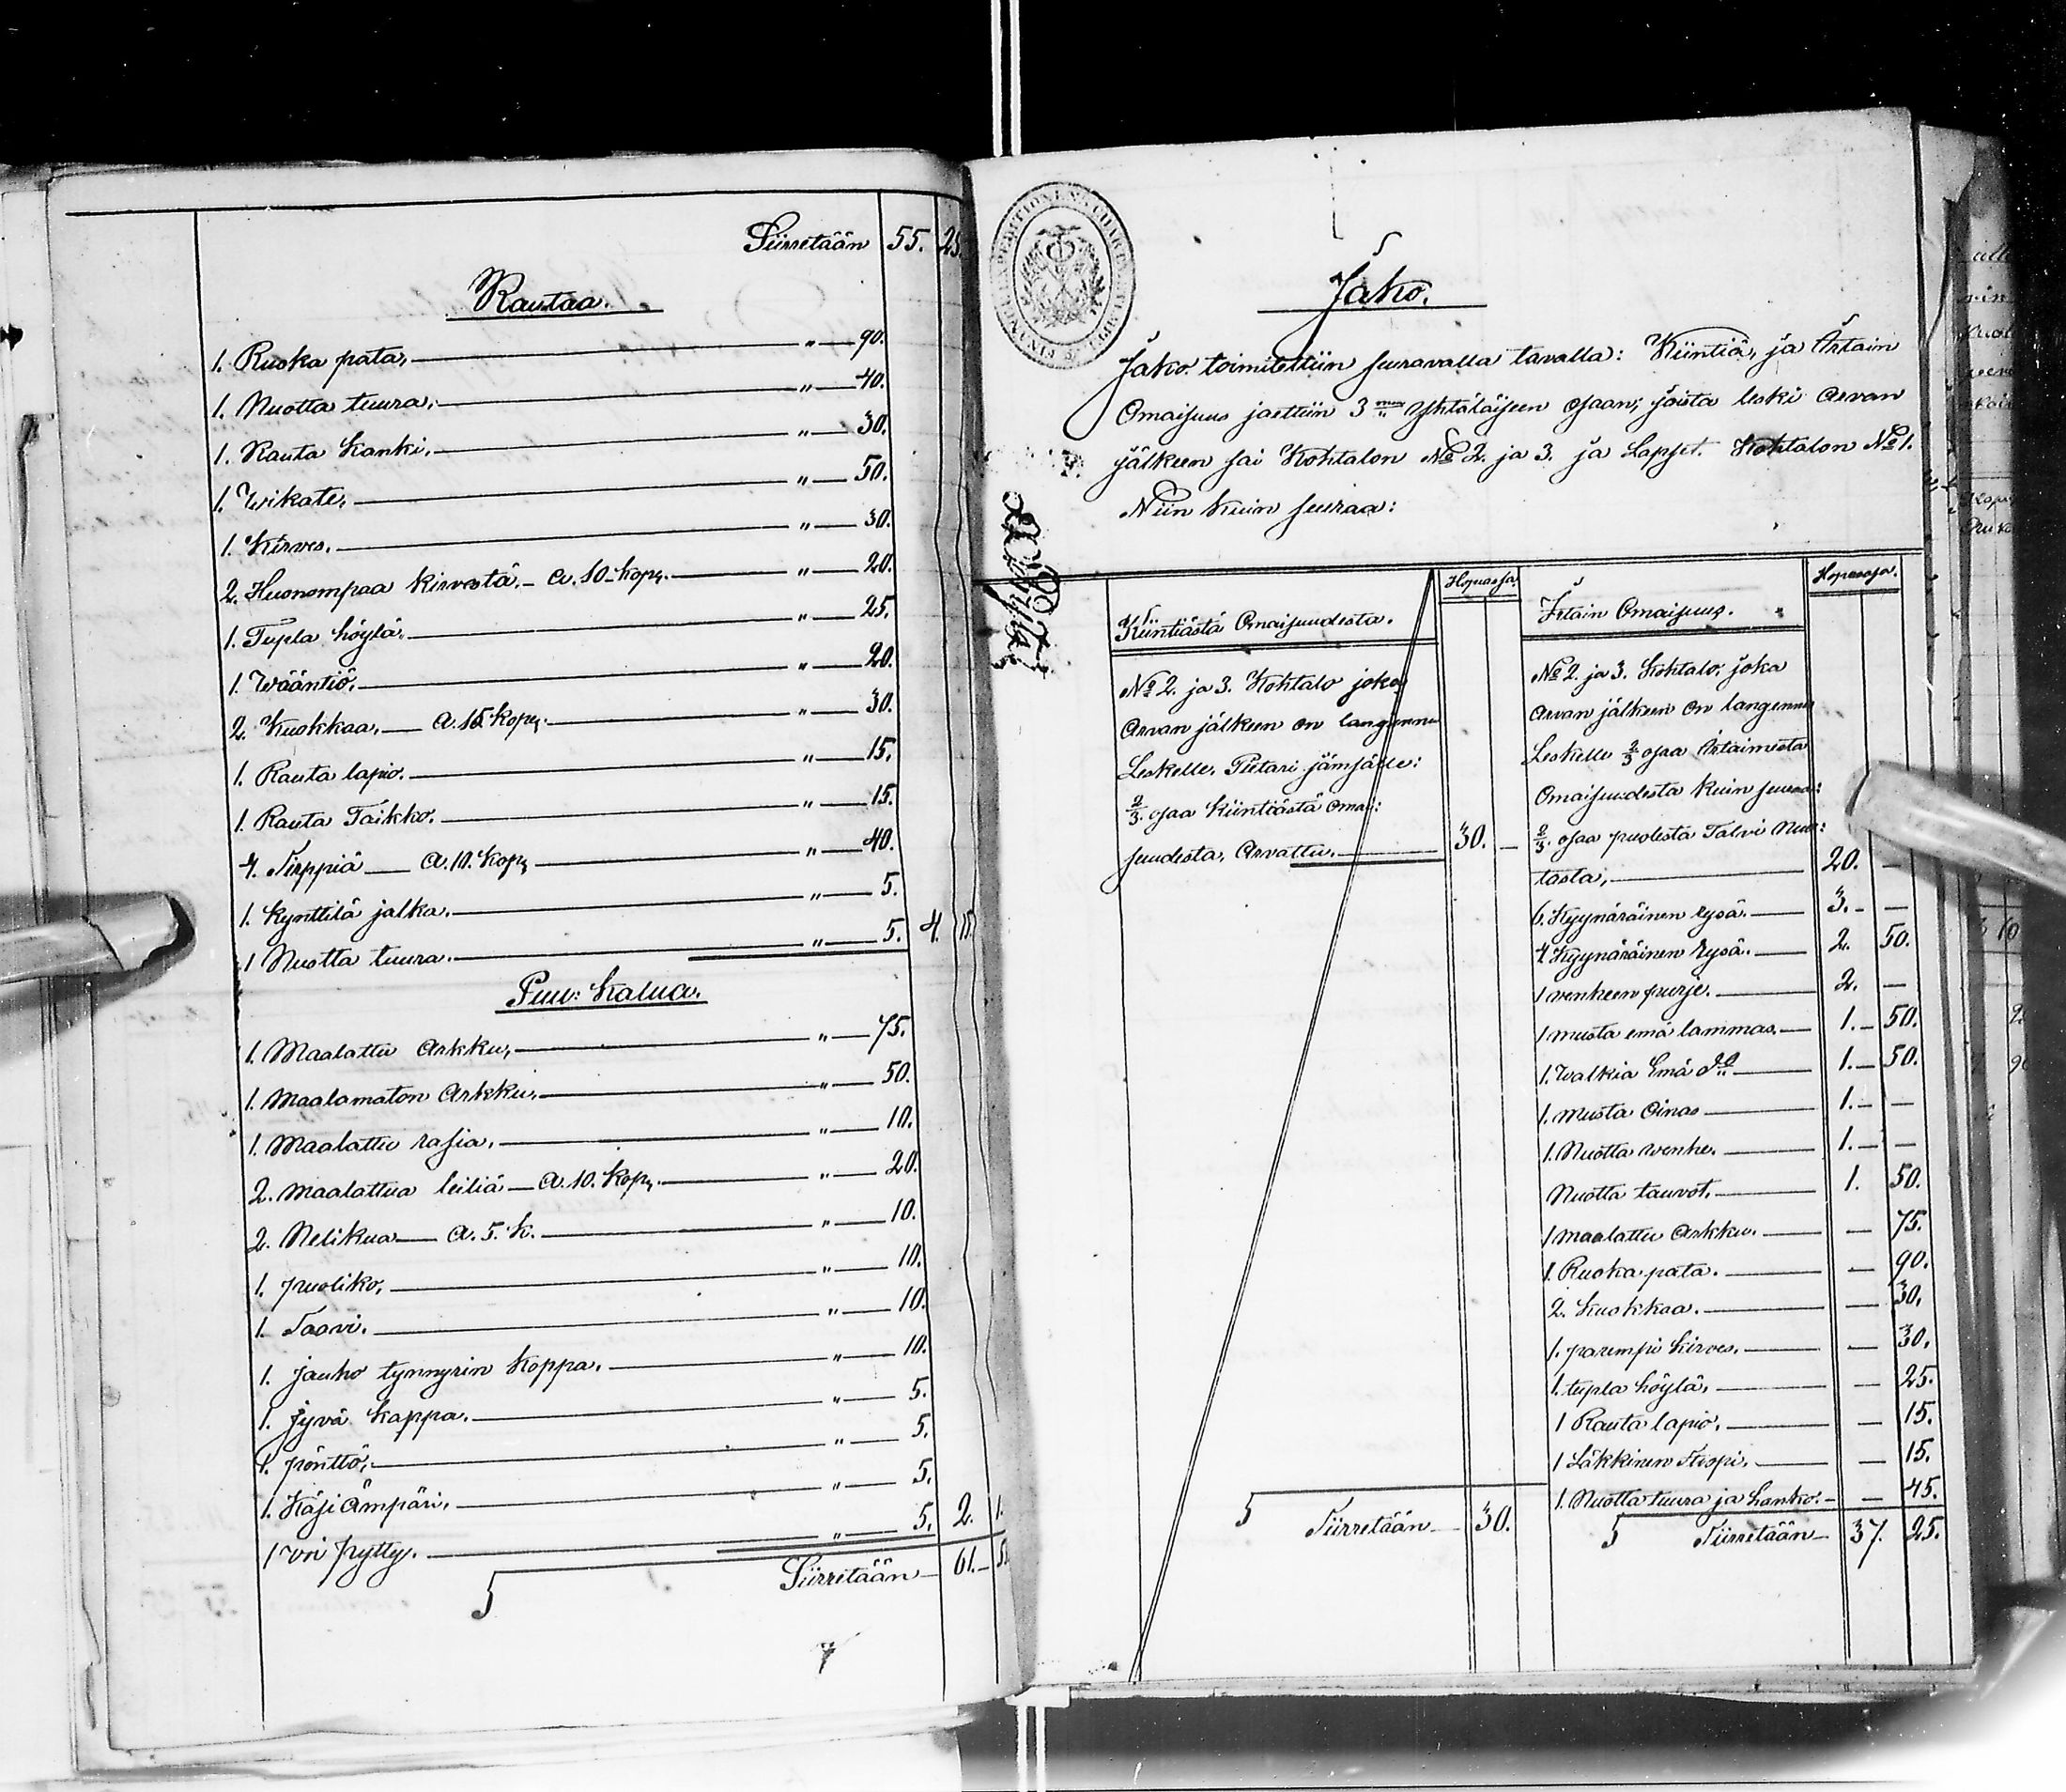 Siirretään 55. 25.
Rautaa.
1. Ruoka pata, " 90.
1. Nuotta tuura, " 40.
1. Rauta kanki. " 30.
1. Wikate. " 50.
1. Kirves. " 30.
2. Huonompaa kirvestä. a. 10 kop. " 20.
1. Tupla höylä. " 25.
1. Wääntiö. " 20.
2. Kuokkaa. a. 15 kop. " 30.
1. Rauta lapio. " 15.
1. Rauta Taikko. " 15.
4. Sirppiä a. 10. kop. " 40.
1. kynttilä jalka. " 5.
1 Nuotta tuura. " 5. 4. 15.
Puu: kalua.
1. Maalattu Arkku, " 75.
1. Maalamaton Arkku. " 50.
1. Maalattu rasia. " 10.
2. Maalattua leiliä a. 10. kop. " 20.
2. Nelikua a. 5. k. " 10.
1. puoliko. " 10.
1. Saavi. " 10.
1. jauho tynnyrin koppa. " 10.
1. jyvä kappa. " 5.
1. pönttö. " 5.
1. Käsi Ämpäri. " 5.
1 vri pytty. " 5. 2. 1.
Siirretään 61. 5
Jako.
Jako toimitettiin seuravalla tavalla: Kiintiä, ja Irtain
Omaisuus jaettiin 3 Yhtäläiseen osaan; joista leski arvan
jälkeen sai Kohtalon No 2. ja 3. ja Lapset. Kohtalon No 1.
Niin kuin seuraa:
Kiintiästä Omaisuudesta. Hopeassa.
No 2. ja 3. Kohtalo joka
Arvan jälkeen on langennu
Leskelle. Pietari
2/3. osaa kiintiästä omai:
suudesta. Arvattu. 30. —
Siirretään 30.
Irtain Omaisuus. Hopeassa.
No 2. ja 3. Kohtalo, joka
arvan jälkeen on langennu
Leskelle 2/3 osaa Irtaimesta
Omaisuudesta kuin seuraa:
2/3. osaa puolesta Talvi Nuo:
tasta, 20. —
6. Kyynäräinen rysä. 3. —
4. Kyynäräinen rysä. 2. 50.
1 venheen purje. 2. —
1 musta emä lammas. 1. 50.
1. Walkia Emä do 1. 50.
1. musta Oinas 1. —
1. Nuotta wenhe. 1. —
Nuotta tauvot. 1. 50.
1 maalattu Arkku. — 75.
1. Ruoka pata. — 90.
2. kuokkaa. — 30.
1. parempi kirves. — 30.
1. tupla höylä. — 25.
1 Rauta lapio. — 15.
1 Läkkinen Stopi. — 15.
1. Nuotta tuura ja hanko. — 45.
Siirretään 37. 25.